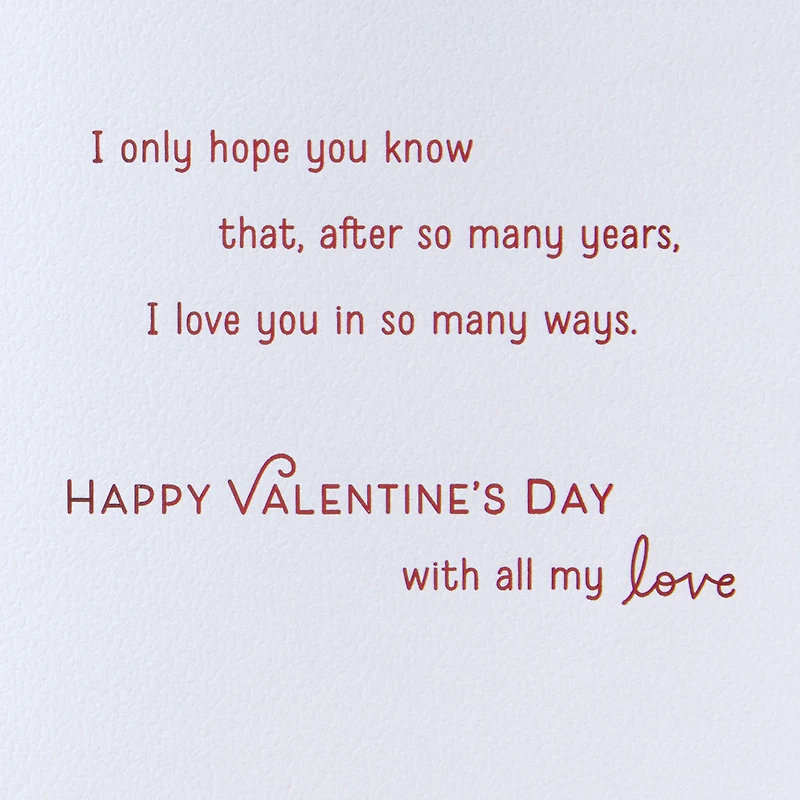 I only hope you know
that, after so many years,
I love you in so many ways.
HAPPY VALENTINE'S DAY
with all my love